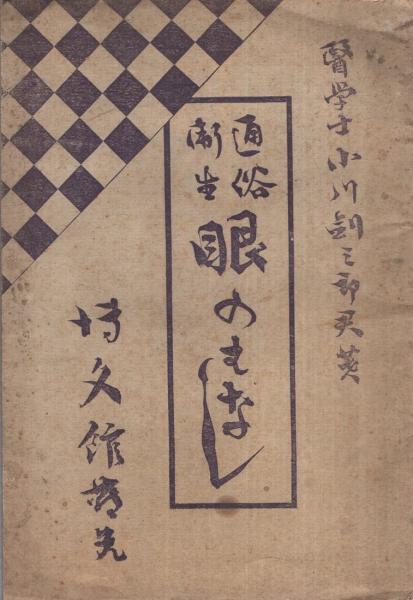 醫學士小川劍三郎君著
通俗
衞生
眼のはなし
博文館發兌